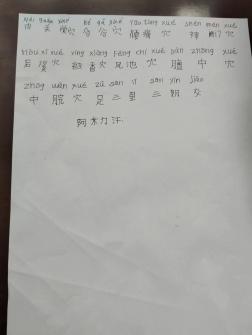 nèi guān xué hé gǔ xué rǔ táng xué shén mén xué
内 关 穴 合 谷 穴 膻 瘴 穴 神 门 穴
hòu xī xué yíng xiāng fēng chí xué pán zhōng xué
后 溪 穴 迎 香 穴 风 池 穴 膻 中 穴
zhōng wǎn xué zú sān lǐ sān yīn jiāo
中 脘 穴 足 三 里 三 阴 交
阿木力汗